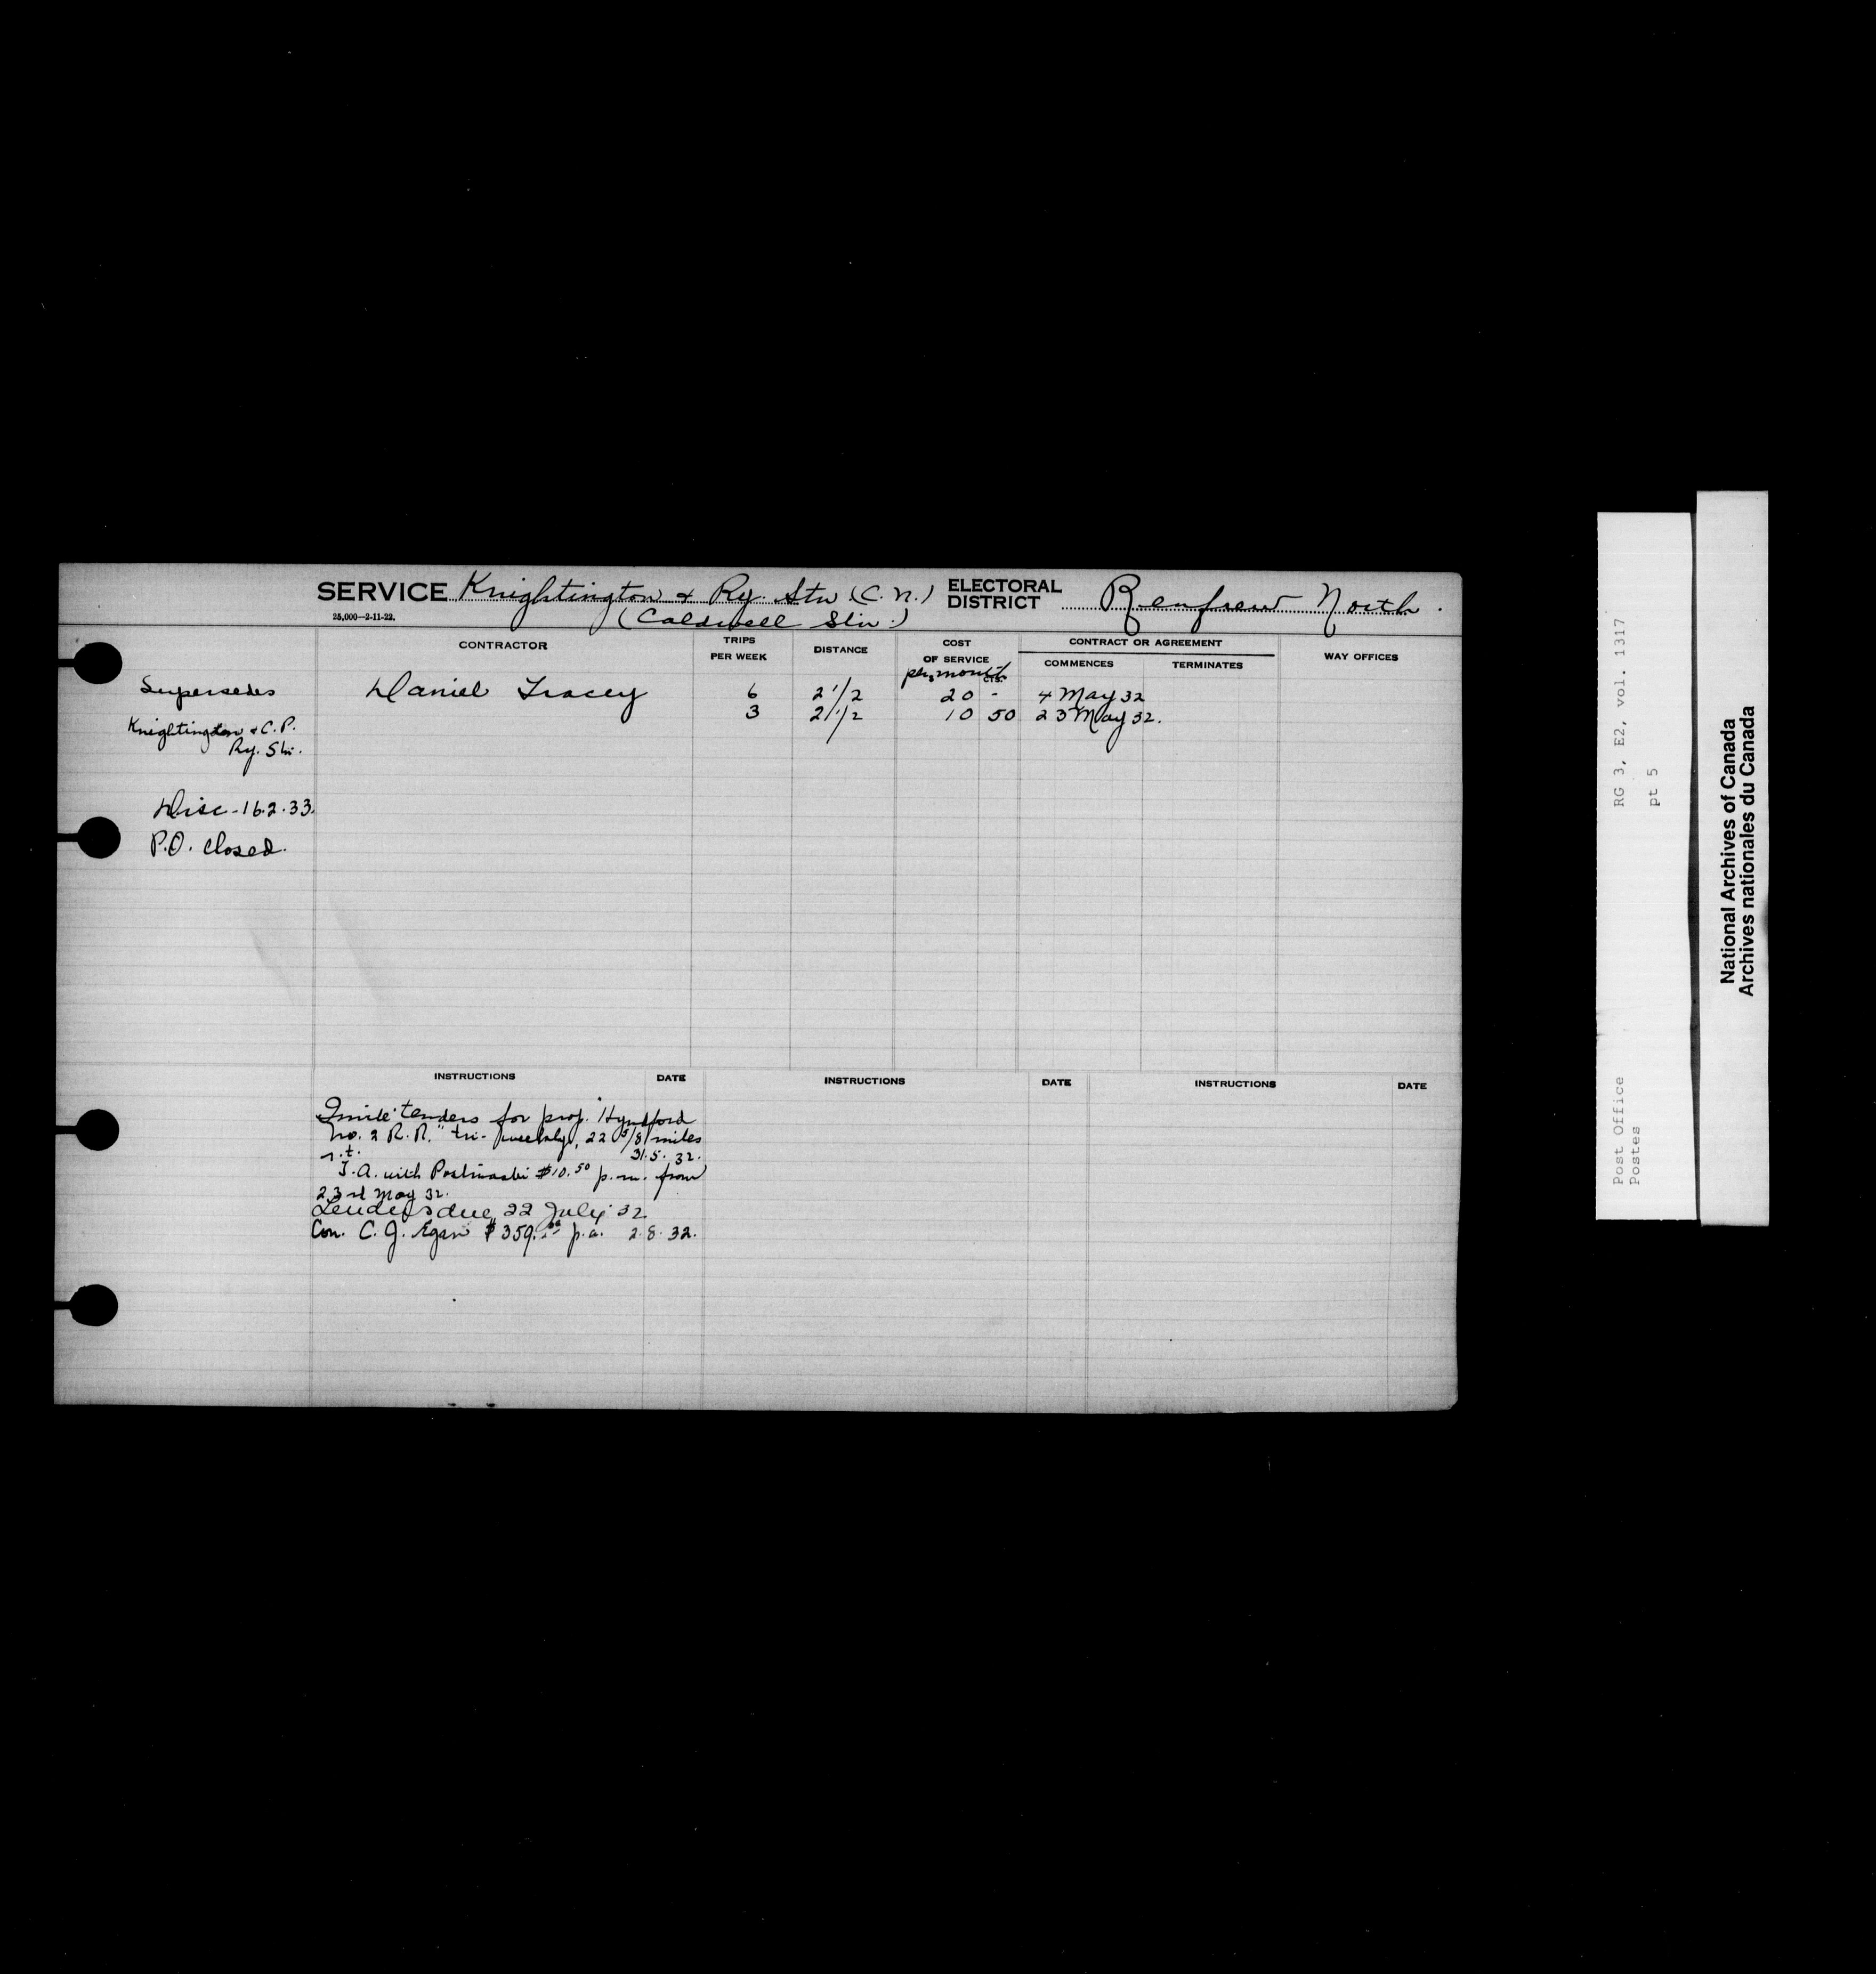 SERVICE Knightington & Ry. Stn (C.N.) ELECTORAL DISTRICT Renfrew North.
25,000—2-11-22.
(Caldwell Stn.)
CONTRACTOR TRIPS PER WEEK DISTANCE COST OF SERVICE CONTRACT OR AGREEMENT WAY OFFICES
COMMENCES TERMINATES
per month
$ CTS.
Supersedes Daniel Tracey 6 2 1/2 20 - 4 May 32
3 2 1/2 10 50 23 May 32.
Knightington & C.P.
Ry. Stn.
Disc - 16.2.33.
P.O. closed.
INSTRUCTIONS DATE INSTRUCTIONS DATE INSTRUCTIONS DATE
Invite tenders for prop. "Hyndford
No. 2 R.R." tri-weekly, 22 5/8 miles
r.t. 31.5.32.
T.A. with Postmaster $10.50 p.m. from
23rd May 32.
Tenders due 22 July 32
Con. C. J. Egan $359.00 p.a. 2.8.32.
RG 3, E2, vol. 1317
pt 5
Post Office
Postes
National Archives of Canada
Archives nationales du Canada